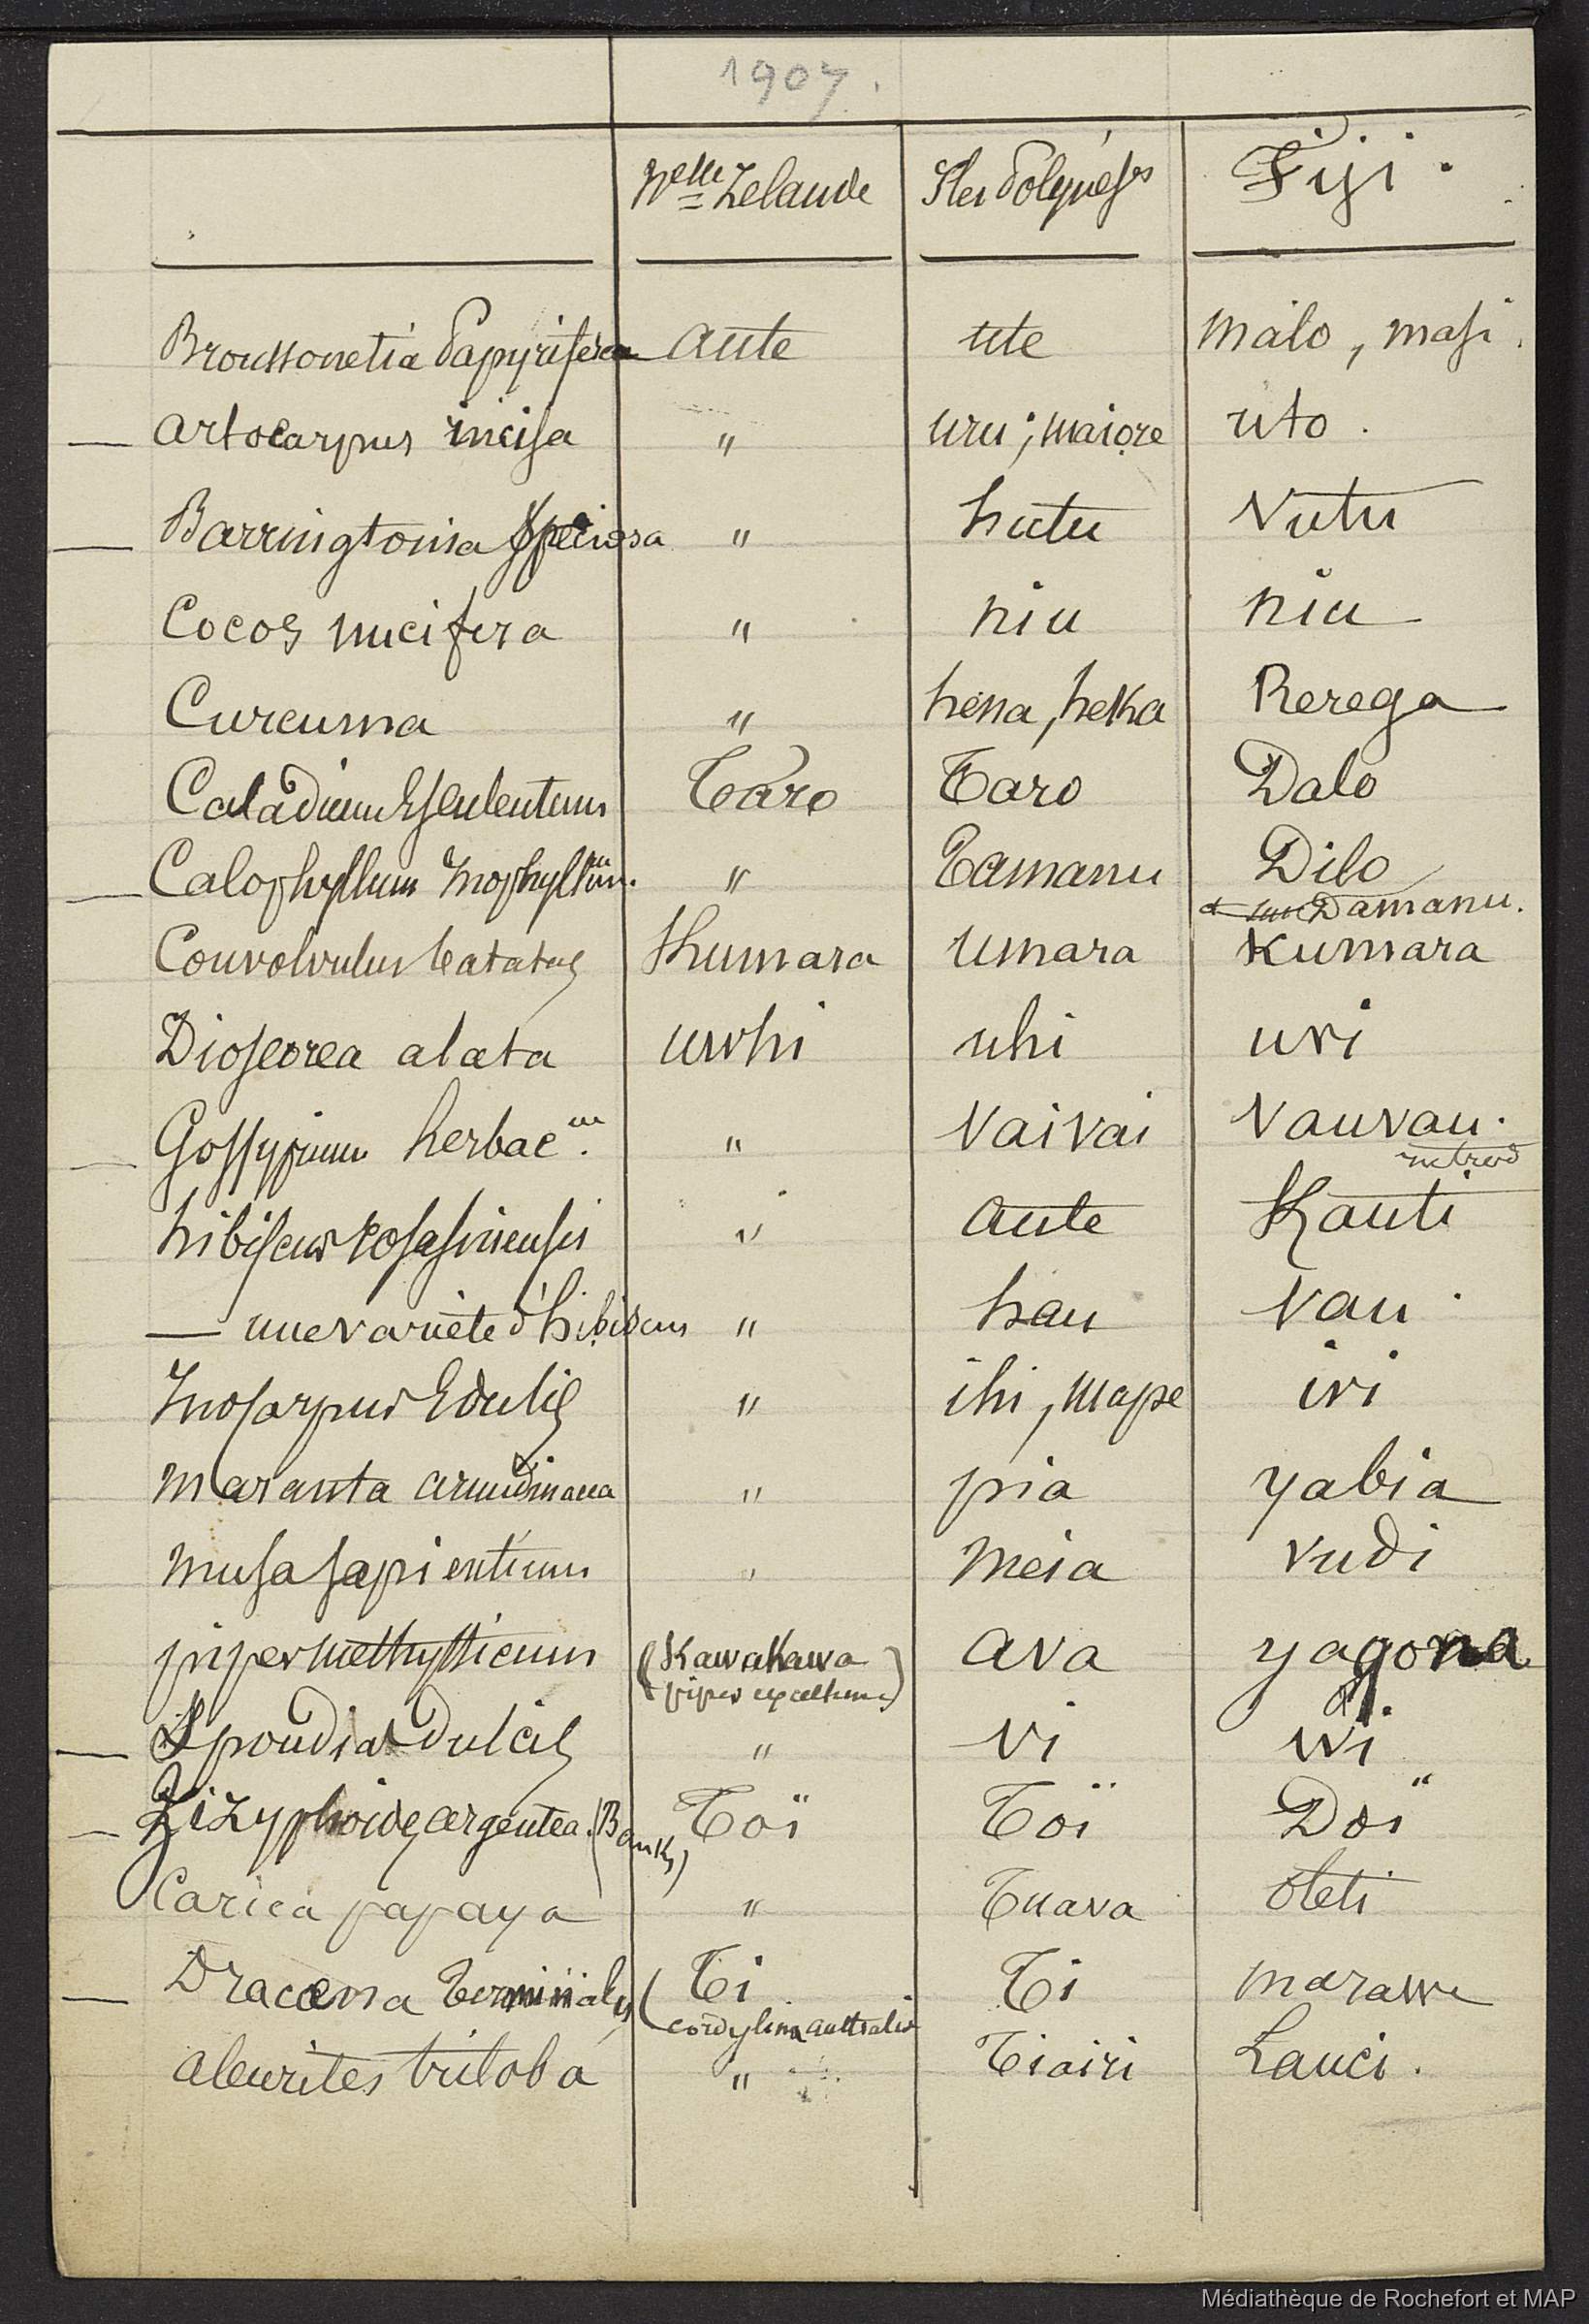 1907.
Nelle Zelande Iles Polynéses Fiji.
Broussonetia Papyrifera aute ute malo, masi.
— artocarpus incisa " uru; maiore uto.
— Barringtonia speciosa " hutu Vutu
Cocos nucifera " niu niu
Curcuma " hena, heka Rerega
Caladium Esculentum Taro Taro Dalo
— Calophyllum Inophyllum. " Tamanu Dilo
Damanu.
Convolvulus batatas Kumara Umara Kumara
Dioscorea alata uwhi uhi uvi
— Gossypium herbac um. " Vaivai Vauvau.
hibiscus rosasinensis " aute Kauti
— une variété d'hibiscus " hau Vau.
Inocarpus Edulis " ihi, mape ivi
Maranta arundinacea " pia yabia
Musa sapientium " Meia vudi
piper methysticum (Kawakawa ava yagona
piper excelsum)
— Spondias Dulcis " vi wi
— Zizyphoides argentea. (Banks) Toï Toï Doï
Carica papaya " Tuava Oleti
— Dracoena Terminalis (Ti Ti marawe
cordylina australis
aleurites triloba " Tiairi Lauci.
Médiathèque de Rochefort et MAP